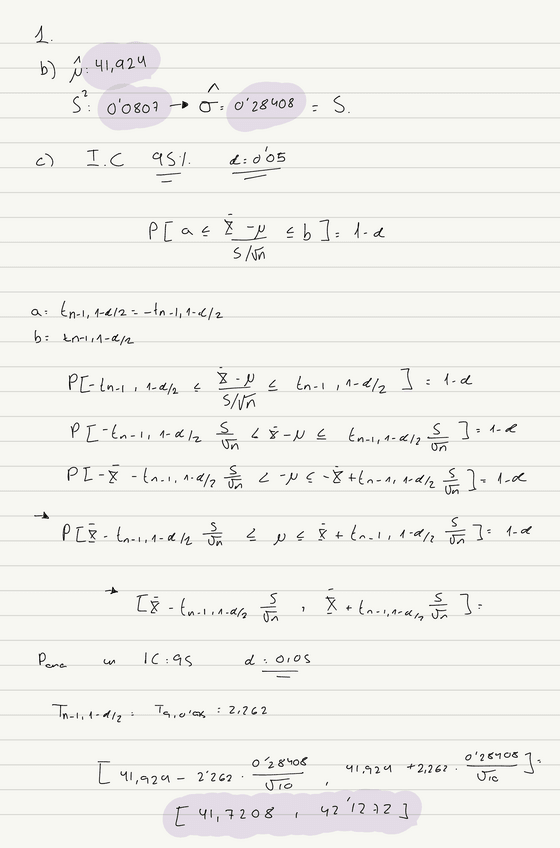 1.
b) μ̂: 41,924
S²: 0'0807 → σ̂ = 0'28408 = S.
c) I.C 95% α: 0'05
P[ a ≤ (x̄ - μ)/(S/√n) ≤ b ] = 1-α
a: t n-1, 1-α/2 = -t n-1, 1-α/2
b: t n-1, 1-α/2
P[ -t n-1, 1-α/2 ≤ (x̄ - μ)/(S/√n) ≤ t n-1, 1-α/2 ] = 1-α
P[ -t n-1, 1-α/2 S/√n < x̄ - μ ≤ t n-1, 1-α/2 S/√n ] = 1-α
P[ -x̄ - t n-1, 1-α/2 S/√n < -μ ≤ -x̄ + t n-1, 1-α/2 S/√n ] = 1-α
→ P[ x̄ - t n-1, 1-α/2 S/√n ≤ μ ≤ x̄ + t n-1, 1-α/2 S/√n ] = 1-α
→ [ x̄ - t n-1, 1-α/2 S/√n , x̄ + t n-1, 1-α/2 S/√n ] =
Para un IC: 95 α: 0,05
T n-1, 1-α/2 = : 2,262
[ 41,924 - 2'262 · 0'28408/√10 , 41,924 + 2,262 · 0'28408/√10 ] =
[ 41,7208 , 42'1272 ]